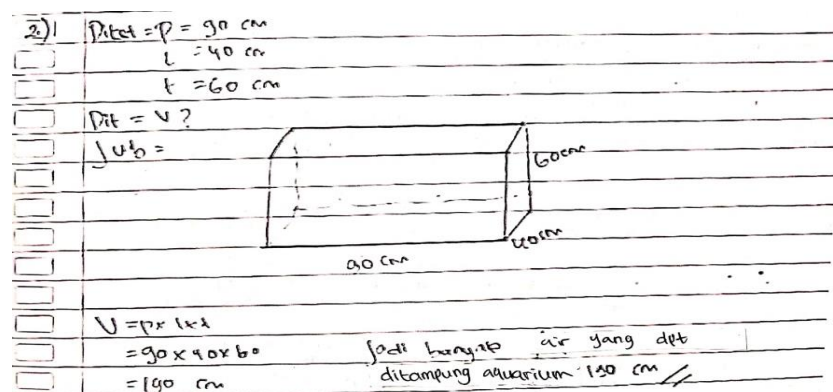 2.) Diket = P = 90 cm
l = 40 cm
t = 60 cm
Dit = V ?
Jwb =
60 cm
40 cm
90 cm
V = p x l x t
= 90 x 40 x 60
= 190 cm
Jadi banyak air yang dpt
ditampung aquarium 190 cm